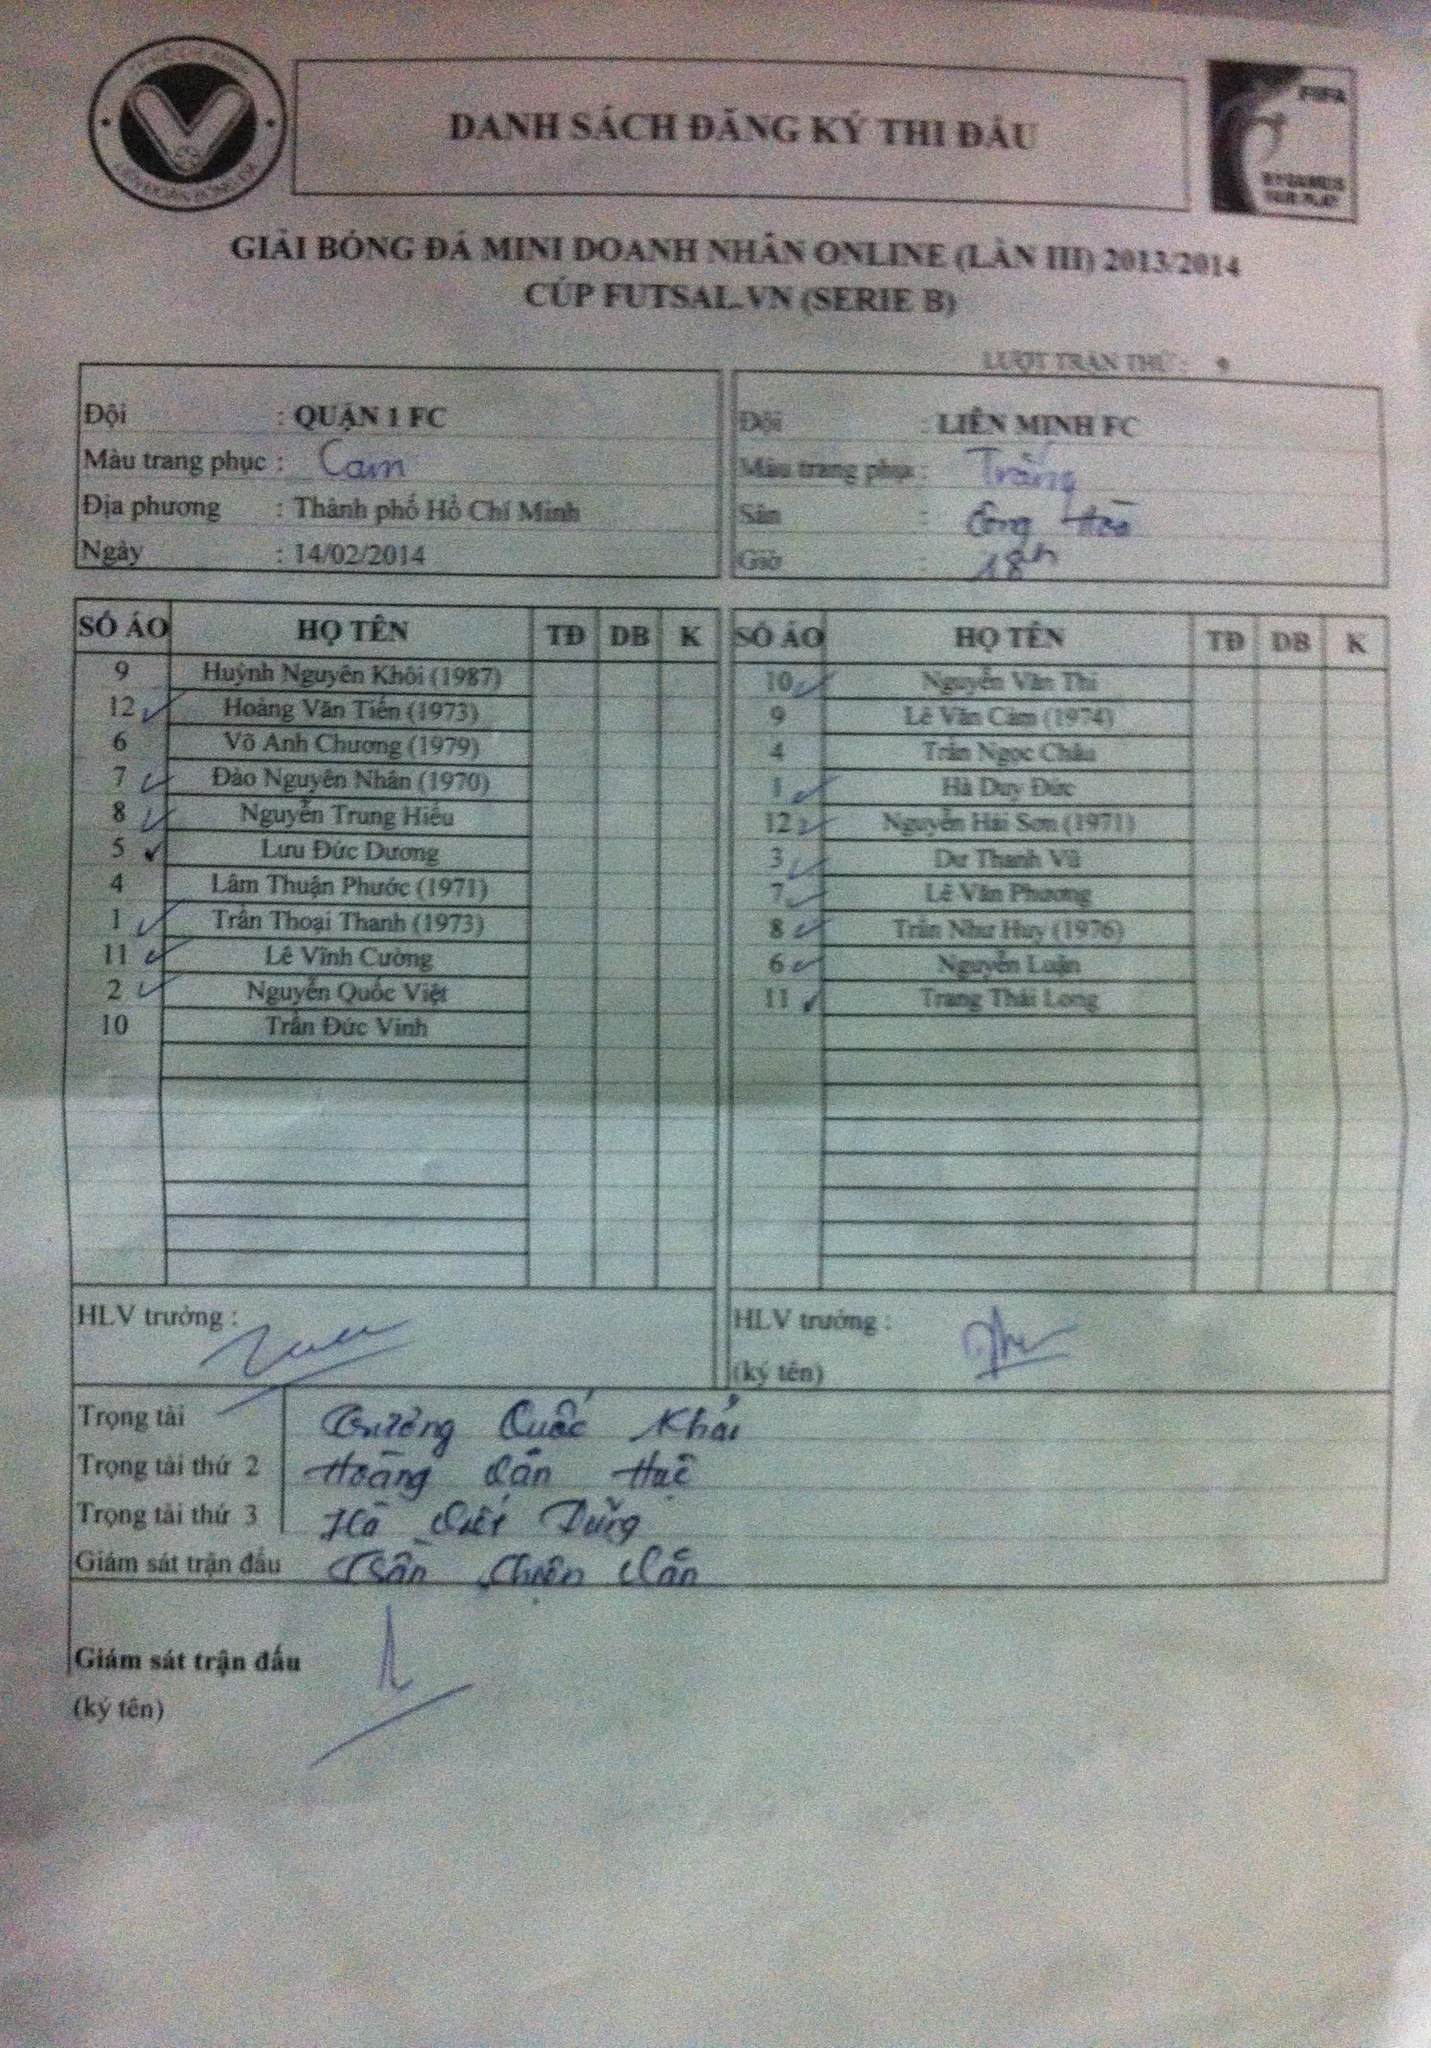 DANH SÁCH ĐĂNG KÝ THI ĐẤU
FIFA
GIẢI BÓNG ĐÁ MINI DOANH NHÂN ONLINE (LẦN III) 2013/2014
CÚP FUTSAL.VN (SERIE B)
LƯỢT TRẬN THỨ : 9
Đội : QUẬN 1 FC
Màu trang phục : Cam
Địa phương : Thành phố Hồ Chí Minh
Ngày : 14/02/2014
Đội : LIÊN MINH FC
Màu trang phục : Trắng
Sân : Cộng Hòa
Giờ : 18h
SỐ ÁO HỌ TÊN TĐ DB K
9 Huỳnh Nguyên Khôi (1987)
12 Hoàng Văn Tiến (1973)
6 Võ Anh Chương (1979)
7 Đào Nguyên Nhân (1970)
8 Nguyễn Trung Hiếu
5 Lưu Đức Dương
4 Lâm Thuận Phước (1971)
1 Trần Thoại Thanh (1973)
11 Lê Vĩnh Cường
2 Nguyễn Quốc Việt
10 Trần Đức Vinh
SỐ ÁO HỌ TÊN TĐ DB K
10 Nguyễn Văn Thi
9 Lê Văn Cảm (1974)
4 Trần Ngọc Châu
1 Hà Duy Đức
12 Nguyễn Hải Sơn (1971)
3 Dư Thanh Vũ
7 Lê Văn Phương
8 Trần Như Huy (1976)
6 Nguyễn Luận
11 Trang Thái Long
HLV trưởng :
HLV trưởng :
(ký tên)
Trọng tài Trương Quốc Khải
Trọng tài thứ 2 Hoàng Văn Huệ
Trọng tài thứ 3 Hà Dũng
Giám sát trận đấu Trần
Giám sát trận đấu
(ký tên)